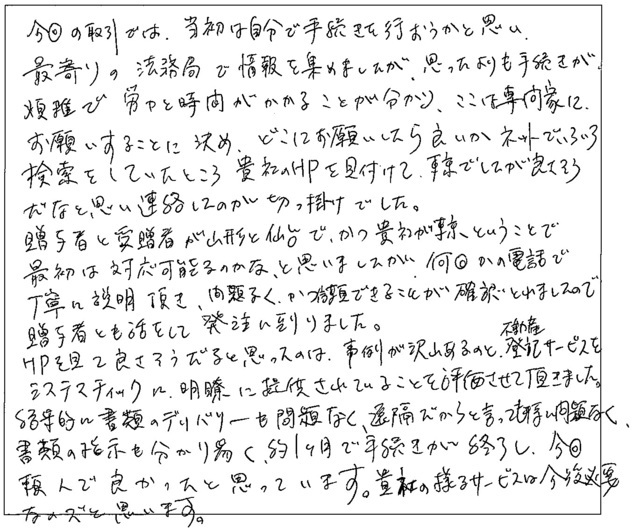 今回の取引では、当初は自分で手続きを行おうかと思い、
最寄りの法務局で情報を集めましたが、思ったよりも手続きが
煩雑で労力と時間がかかることが分かり、ここは専門家に
お願いすることに決め、どこにお願いしたら良いかネットでいろいろ
検索をしていたところ貴社のHPを見付けて、東京でしたが良さそう
だなと思い連絡したのが切っ掛けでした。
贈与者と受贈者が山形と仙台で、かつ貴社が東京、ということで
最初は対応可能なのかな、と思いましたが、何回かの電話で
丁寧に説明頂き、問題なく、かつ信頼できることが確認とれましたので
贈与者とも話をして発注に到りました。
HPを見て良さそうだなと思ったのは、事例が沢山あるのと、不動産登記サービスを
システマティックに、明瞭に提供されていることを評価させて頂きました。
結果的に書類のデリバリーも問題なく、遠隔だからと言っても特に問題なく、
書類の指示も分かり易く、約1ヶ月で手続きが終了し、今回
頼んで良かったと思っています。貴社の様なサービスは今後必要
なのだと思います。